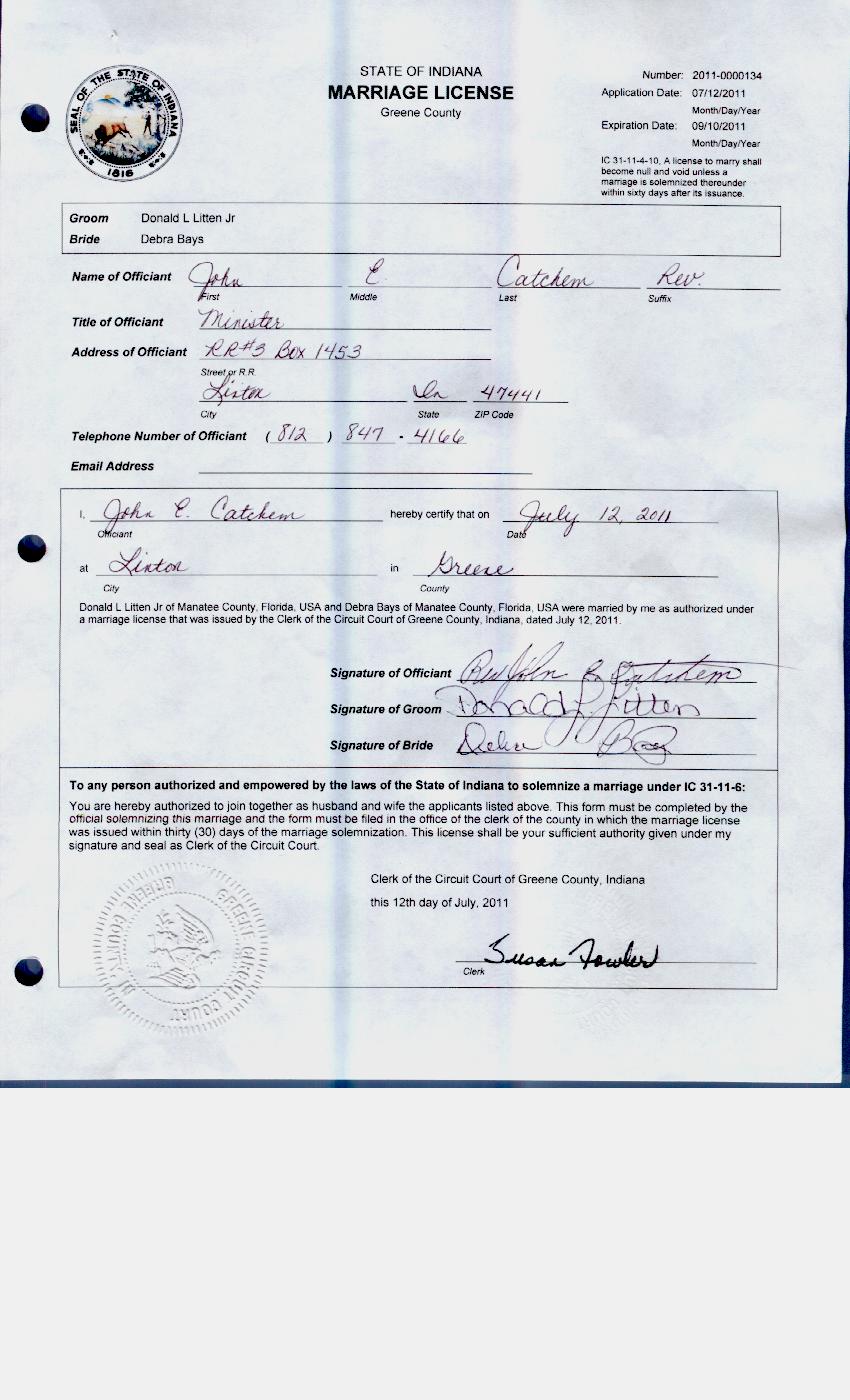 STATE OF INDIANA
MARRIAGE LICENSE
Greene County
SEAL OF THE STATE OF INDIANA
1816
Number: 2011-0000134
Application Date: 07/12/2011
Month/Day/Year
Expiration Date: 09/10/2011
Month/Day/Year
IC 31-11-4-10, A license to marry shall
become null and void unless a
marriage is solemnized thereunder
within sixty days after its issuance.
Groom Donald L Litten Jr
Bride Debra Bays
Name of Officiant John E. Catchem Rev.
First Middle Last Suffix
Title of Officiant Minister
Address of Officiant RR#3 Box 1453
Street or R.R.
Linton In 47441
City State ZIP Code
Telephone Number of Officiant (812) 847 - 4166
Email Address
I, John E. Catchem hereby certify that on July 12, 2011
Officiant Date
at Linton in Greene
City County
Donald L Litten Jr of Manatee County, Florida, USA and Debra Bays of Manatee County, Florida, USA were married by me as authorized under
a marriage license that was issued by the Clerk of the Circuit Court of Greene County, Indiana, dated July 12, 2011.
Signature of Officiant Rev John E Catchem
Signature of Groom Donald L Litten
Signature of Bride Debra Bays
To any person authorized and empowered by the laws of the State of Indiana to solemnize a marriage under IC 31-11-6:
You are hereby authorized to join together as husband and wife the applicants listed above. This form must be completed by the
official solemnizing this marriage and the form must be filed in the office of the clerk of the county in which the marriage license
was issued within thirty (30) days of the marriage solemnization. This license shall be your sufficient authority given under my
signature and seal as Clerk of the Circuit Court.
Clerk of the Circuit Court of Greene County, Indiana
this 12th day of July, 2011
Susan Fowler
Clerk
GREENE CIRCUIT COURT